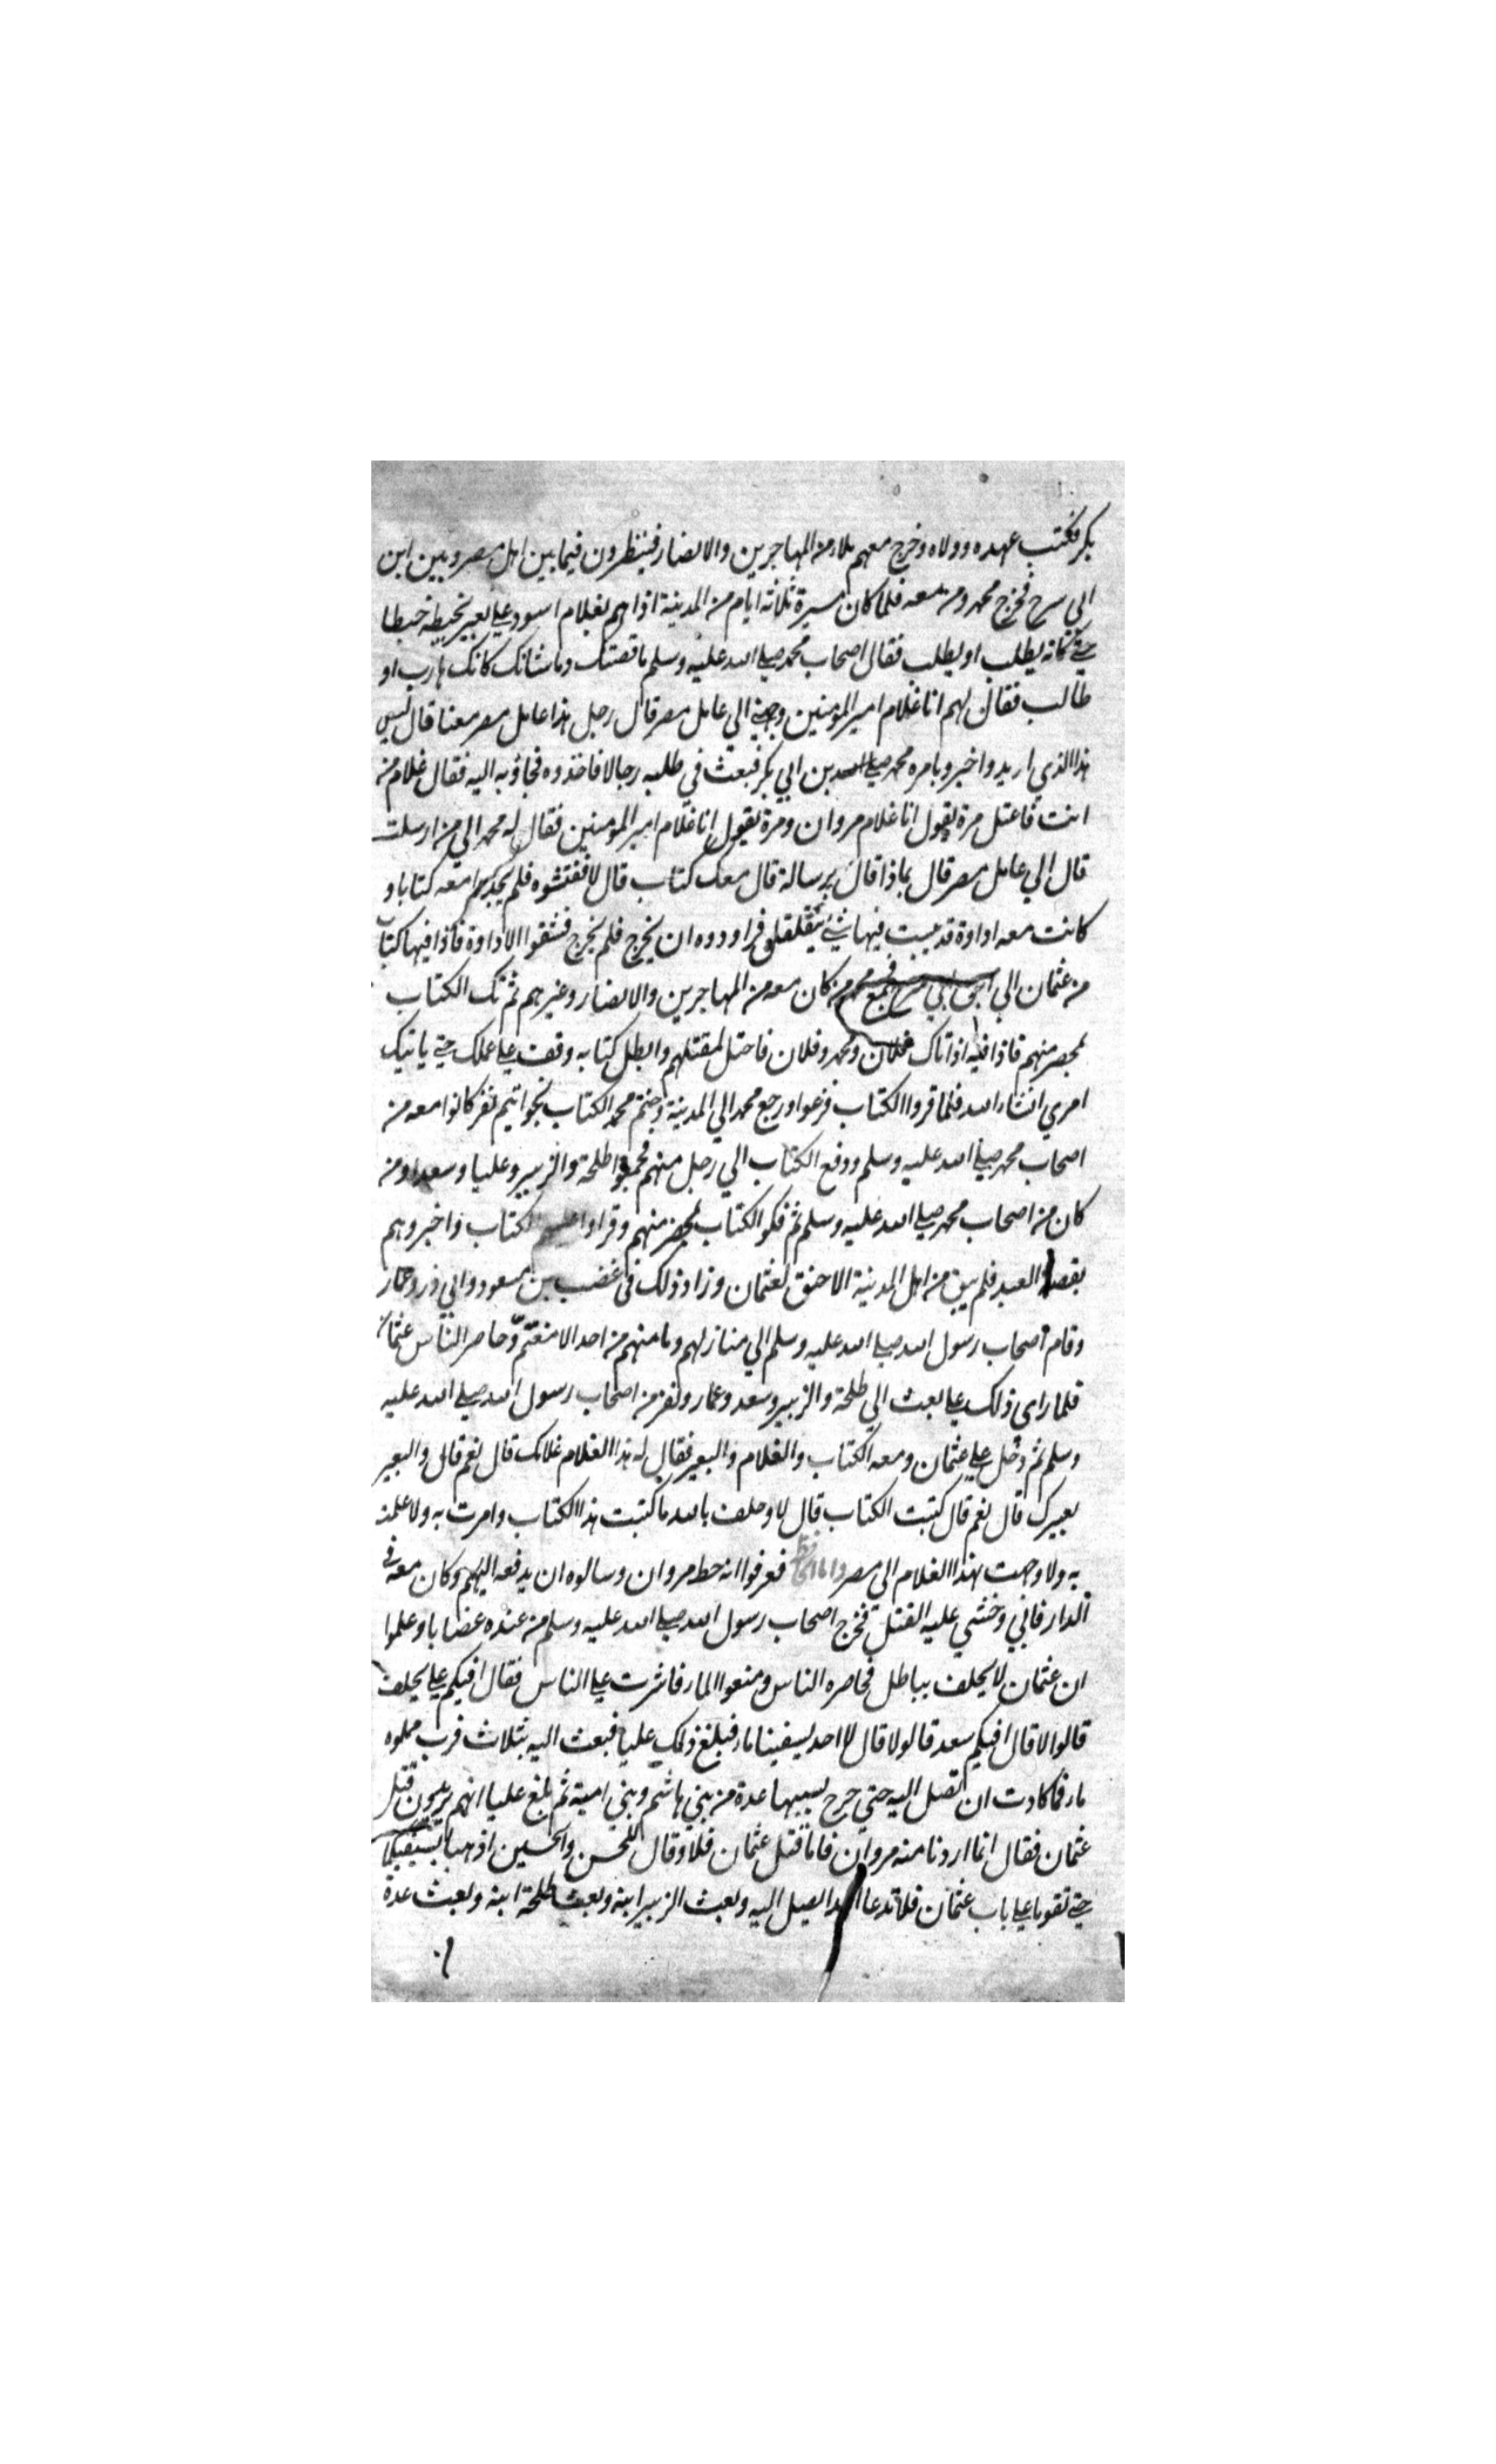 بكر فكتب عهده وولاه وخرج معهم ملاء من المهاجرين والانصار فينظرون فيما بين اهل مصر وبين ابن
ابي سرح فخرج محمد ومن معه فلما كان مسيرة ثلاثة ايام من المدينة اذا هم بغلام اسود على بعير يخبطه خبطا
حتى كانه يطلب او يطلب فقال اصحاب محمد صلى الله عليه وسلم ما قصتك وما شانك كانك هارب او
طالب فقال لهم انا غلام امير المومنين وجهني الي عامل مصر قال رجل هذا عامل مصر معنا قال ليس
هذا الذي اريد واخبروا بامره محمد بن ابي بكر فبعث في طلبه رجالا فاخذوه فجاؤ به اليه فقال غلام من
انت فاعتل مرة يقول انا غلام مروان ومرة يقول انا غلام امير المومنين فقال له محمد الي من ارسلت
قال الي عامل مصر قال بماذا قال برسالة قال معك كتاب قال لا ففتشوه فلم يجد معه كتابا و
كانت معه اداوة قد يبست فيها شئ يتقلقل فراودوه ان يخرج فلم يخرج فشقوا الاداوة فاذا فيها كتاب
من عثمان الي ابن ابي سرح فجمع محمد من كان معه من المهاجرين والانصار وغيرهم ثم فك الكتاب
بمحضر منهم فاذا فيه اذا اتاك فلان ومحمد وفلان فاحتل لمقتلهم وابطل كتابه وقف على عملك حتى ياتيك
امري انشاء الله فلما قروا الكتاب فزعوا ورجع محمد الي المدينة وختم محمد الكتاب بخواتيم نفر كانوا معه من
اصحاب محمد صلى الله عليه وسلم ودفع الكتاب الي رجل منهم فجمعوا طلحة والزبير وعليا وسعدا ومن
كان من اصحاب محمد صلى الله عليه وسلم ثم فكوا الكتاب بمحضر منهم وقراوا عليهم الكتاب واخبروهم
بقصة العبد فلم يبق من اهل المدينة الا حنق لعثمان وزاد ذلك في غضب بن مسعود وابي ذر وعمار
وقام اصحاب رسول الله صلى الله عليه وسلم الي منازلهم وما منهم من احد الا مغتم وحاصر الناس عثمان
فلما راى ذلك علي بعث الي طلحة والزبير وسعد وعمار ونفر من اصحاب رسول الله صلى الله عليه
وسلم ثم دخل علي عثمان ومعه الكتاب والغلام والبعير فقال له هذا الغلام غلامك قال نعم قال والبعير
بعيرك قال نعم قال كتبت الكتاب قال لا وحلف بالله ما كتبت هذا الكتاب وامرت به ولا علمت
به ولا وجهت بهذا الغلام الى مصر واما الخط فعرفوا انه خط مروان وسالوه ان يدفعه اليهم وكان معه في
الدار فابي وخشي عليه القتل فخرج اصحاب رسول الله صلى الله عليه وسلم من عنده غضابا وعلموا
ان عثمان لا يحلف بباطل فحاصره الناس ومنعوا الماء فاشرت على الناس فقال افيكم علي يحلف
قالوا لا قال افيكم سعد قالو لا قال لا احد يسقينا ماء فبلغ ذلك عليا فبعث اليه بثلاث قرب مملوه
ماء فما كادت ان تصل اليه حتي جرح بسببها عدة من بني هاشم وبني امية ثم بلغ عليا انهم يريدون قتل
عثمان فقال انما اردنا منه مروان فاما قتل عثمان فلا وقال للحسن والحسين اذهبا بسيفيكما
حتى تقوما علي باب عثمان فلا تدعا احدا يصل اليه وبعث الزبير ابنه وبعث طلحة ابنه وبعث عدة